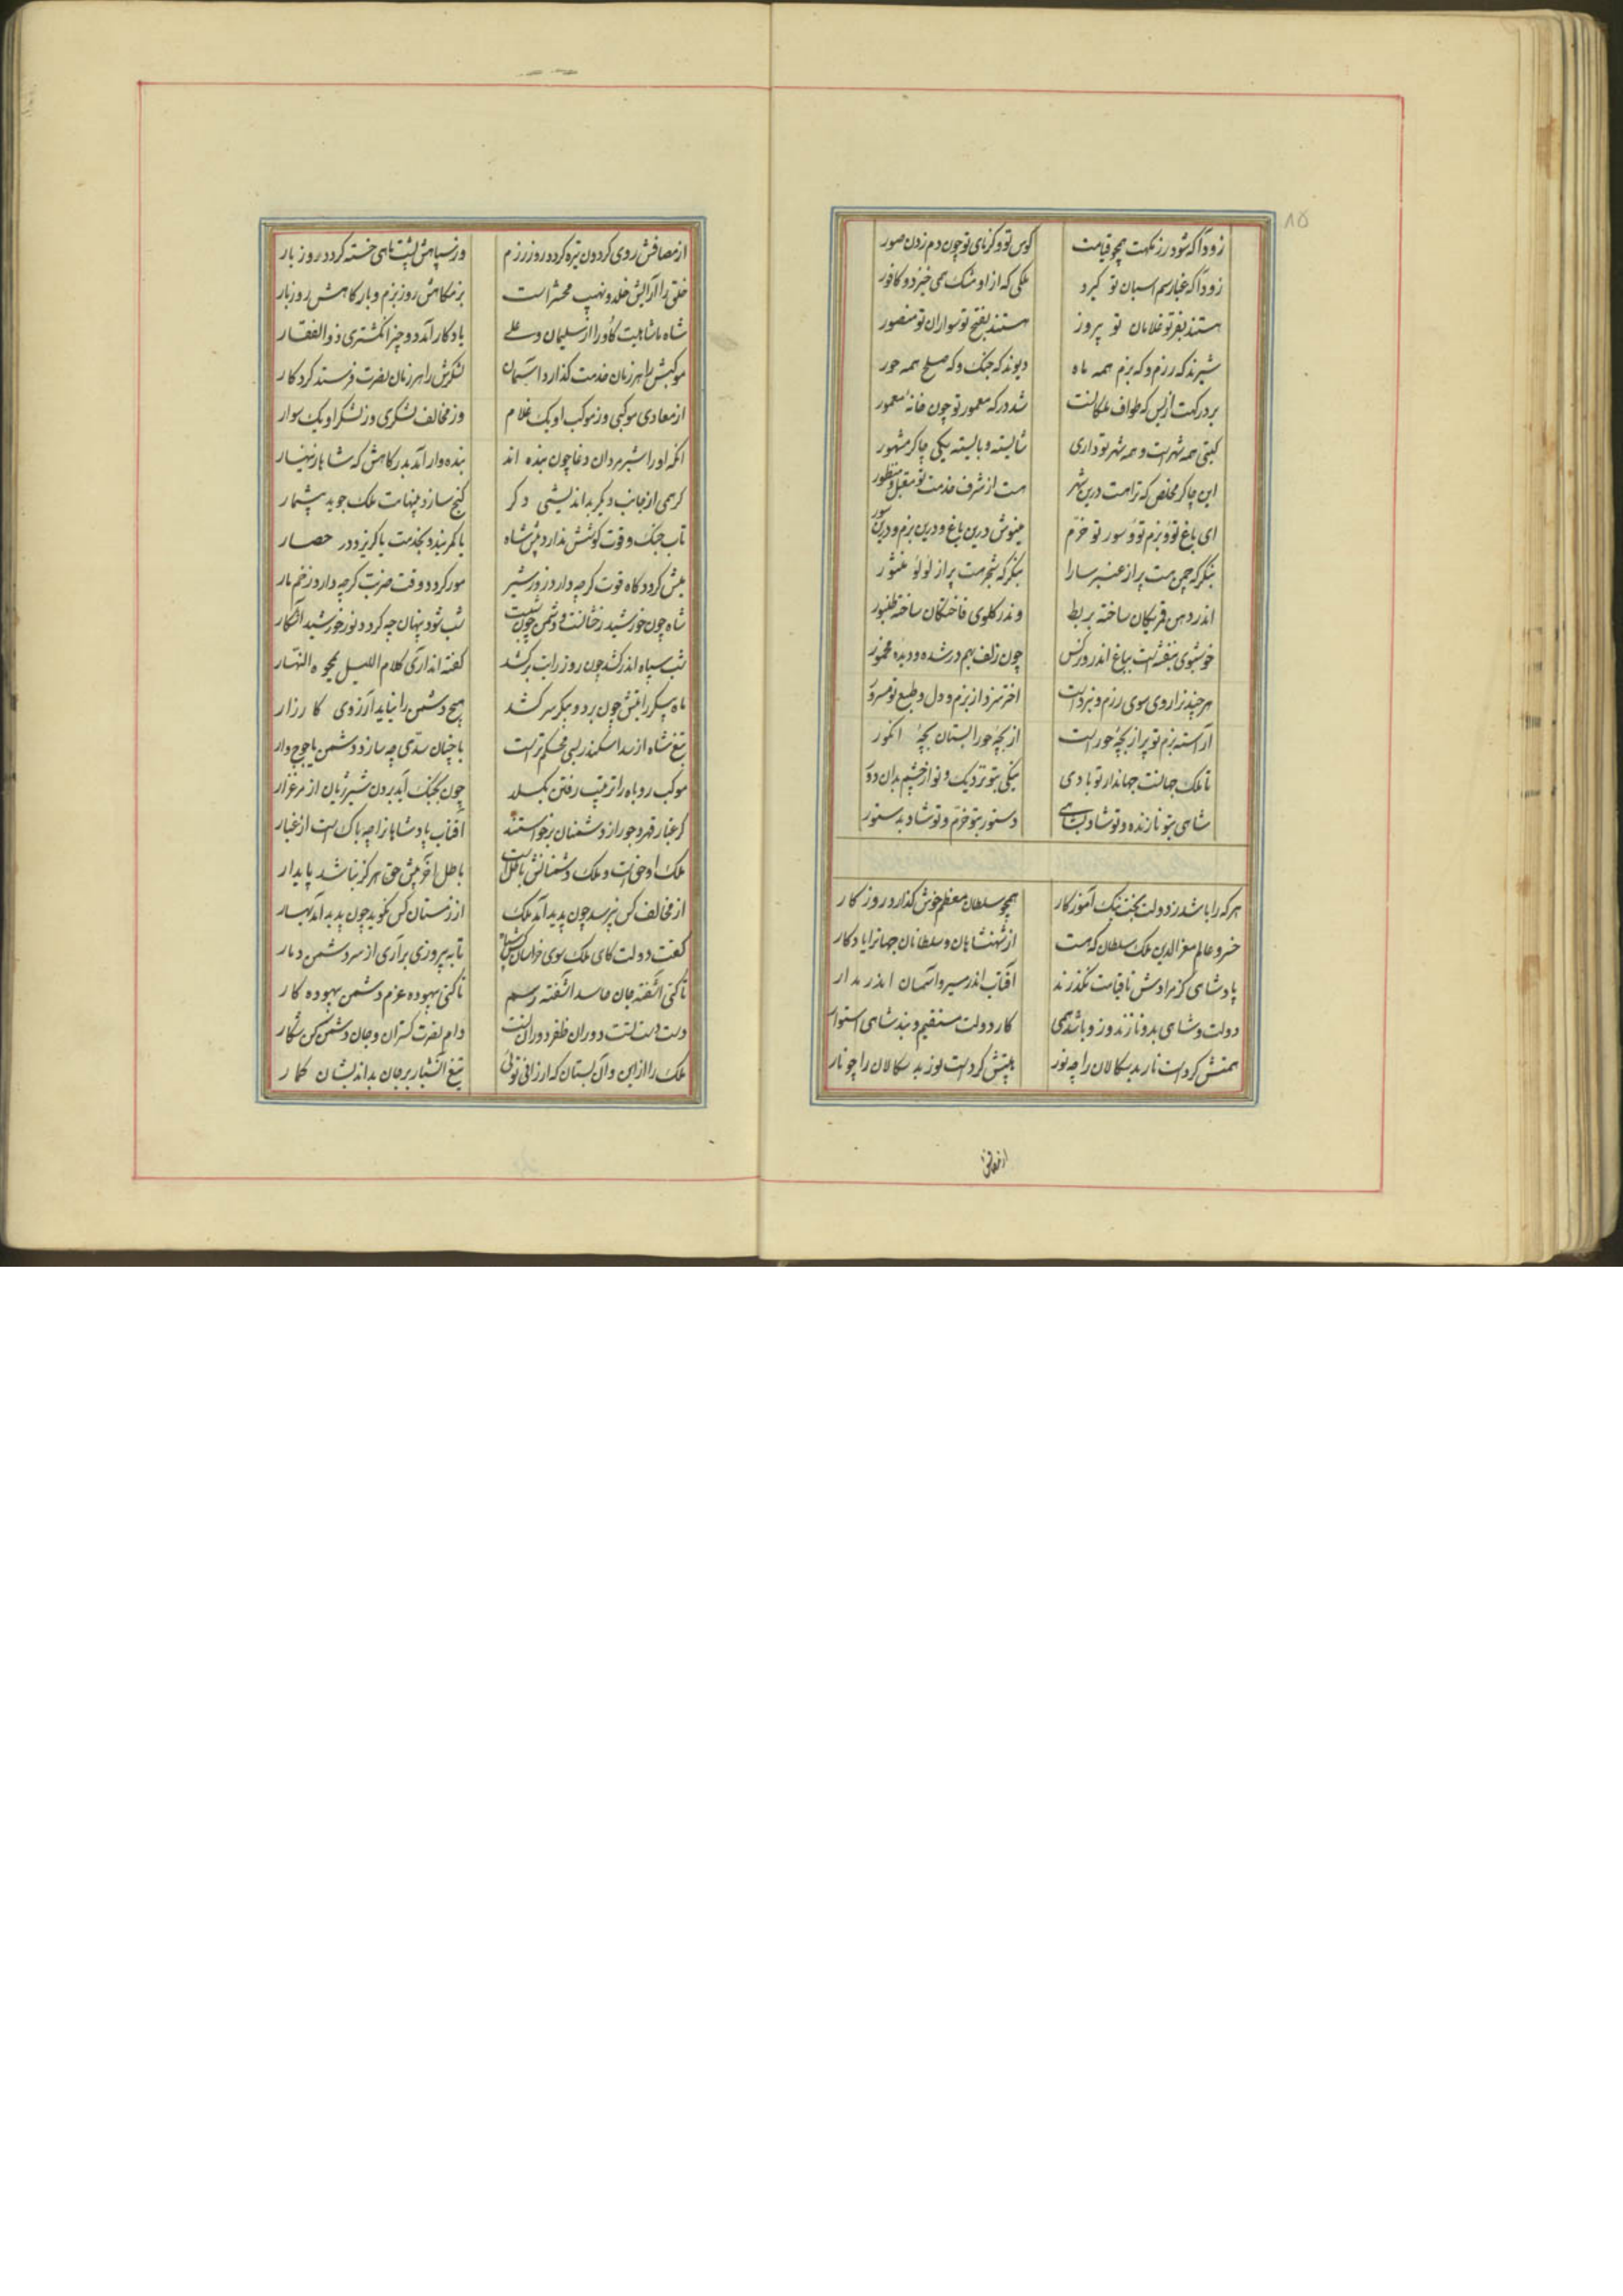 ۸۵
زودا که شود رزمگهت همچو قیامت کوس تو و کرنای تو چون دم زدن صور
زودا که غبار سم اسبان تو گیرد ملکی که از او مشک همی خیزد و کافور
هستند بفر تو غلامان تو پیروز هستند بفتح تو سواران تو منصور
شیرند که رزم و که بزم همه ماه دیوند که جنک و که صلح همه حور
بر درگهت از بس که طواف ملکانست شد درگه معمور تو چون خانه معمور
گیتی همه شهر است و همه شهر تو داری شایسته و بایسته یکی چاکر مشهور
این چاکر مخلص که تراهست درین شهر هست از شرف خدمت تو مقبل و منظور
ای باغ تو و بزم تو و سور تو خرم مینوش درین باغ و درین بزم و درین سور
بنگر که چمن هست پر از عنبر سارا بنگر که شجر هست پر از لولو منثور
اندر دهن قمریکان ساخته بربط وندر گلوی فاختگان ساخته طنبور
خوشبوی بنفشه است بباغ اندر و نرگس چون زلف بهم در شده و دیده مخمور
هر چند ترا روی سوی رزم و نبرد است اختر نبرد از بزم و دل و طبع تو مسرور
آراسته بزم تو پر از بچه حور است از بچه حورا بستان بچه انکور
تا ملک جهانست جهاندار تو بادی نیکی بتو نزدیک و تو از چشم بدان دور
شاهی بتو نازنده و تو شاد بشاهی دستور بتو خرم و تو شاد بدستور
هر که را باشد ز دولت بخت نیک آموزکار همچو سلطان معظم خوش گذارد روز کار
خسرو عالم معزالدین ملک سلطان که هست از شهنشاهان و سلطانان جهانرا یادکار
پادشاهی کز مرادش تا قیامت نگذرند آفتاب اندر مسیر و آسمان اندر مدار
دولت و شاهی بدو نازند و زو باشد همی کار دولت مستقیم و بند شاهی استوار
همتش کرد است نار بدسکالان را چو نور هیبتش کرد است نور بدسکالان را چو نار
از مصافش
از مصافش روی گردون تیره گردد روز رزم وز سپاهش پشت ماهی خسته گردد روز بار
خلق را آرایش خلد و نهیب محشر است بزمگاهش روز بزم و بارگاهش روز بار
شاه ما شاهیست کاو را از سلیمان و علی یادکار آمد دو چیز انگشتری ذوالفقار
موکبش را هر زمان خدمت گذارد آسمان لشکرش را هر زمان نصرت فرستد کردکار
از معادی موکبی وز موکب او یک غلام وز مخالف لشکری وز لشکر او یک سوار
آنکه او را شیر مردان وغا چون بنده اند بنده وار آمد بدرگاهش که شاها زینهار
گر همی از جانب دیگر بداندیشی دگر گنج سازد بینهایت ملک جوید بیشمار
تاب جنک و قوت کوشش ندارد پیش شاه یا کمر بندد بخدمت یا گریزد در حصار
میش گردد گاه قوت گرچه دارد زور شیر مور گردد وقت ضربت گرچه دارد زخم مار
شاه چون خورشید رخشانست و دشمن چون شبست شب شود پنهان چه گردد نور خورشید آشکار
شب سپاه اندر کشد چون روز رایت برکشد گفته اند آری کلام اللیل یمحوه النهار
ماه پیکر رایتش چون بر دو پیکر سر کشد هیچ دشمن را نیاید آرزوی کارزار
تیغ شاه از سد اسکندر بسی محکم تر است با چنان سدی چه سازد دشمن یاجوج وار
موکب روباه را ترتیب رفتن بکسلد چون بجنک آید برون شیر ژیان از مرغزار
گر غبار قهر و جور از دشمنان برخواستند آفتاب پادشاهانرا چه باک است از غبار
ملک او حق است و ملک دشمنانش باطل است باطل آخر پیش حق هرگز نباشد پایدار
از مخالف کس نپرسد چون پدید آمد ملک از زمستان کس نگوید چون پدید آمد بهار
گفت دولت کای ملک سوی خراسان کش سپاه تا به پیروزی برآری از سر دشمن دمار
تا کنی آشفته جان حاسد آشفته رسم تا کنی بیهوده عزم دشمن بیهوده کار
دست دست تست و دوران ظفر دوران تست دام نصرت گستران و جان دشمن کن شکار
ملک را از این و آن بستان که ارزانی توئی تیغ آتشبار بر جان بداندیشان گمار